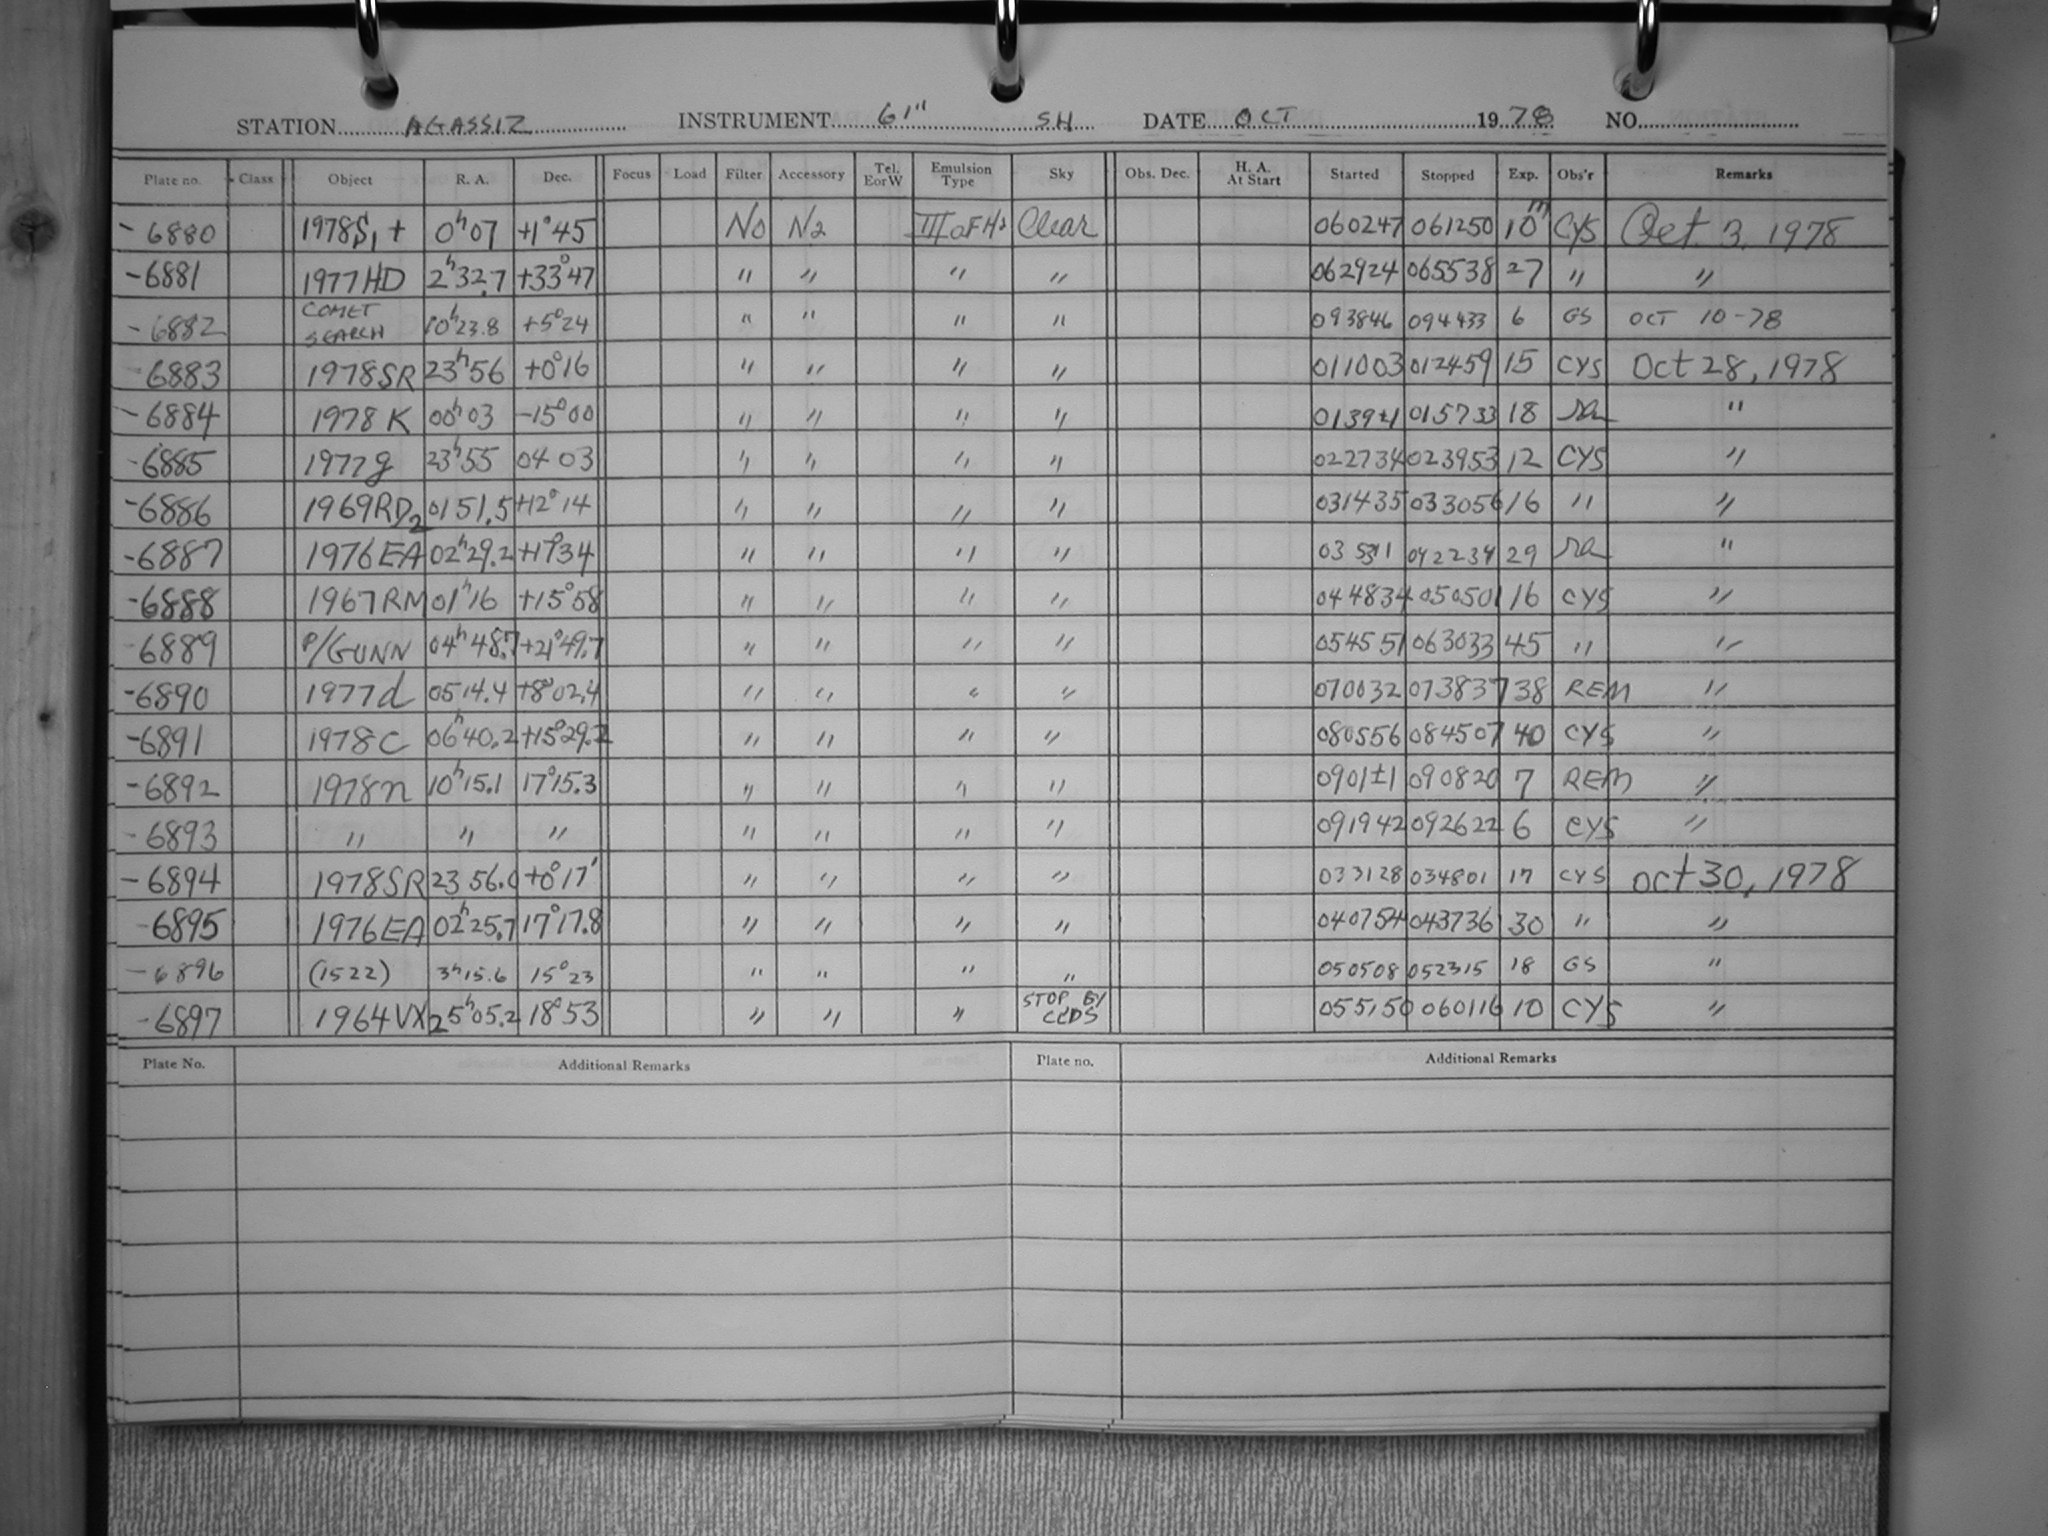 STATION AGASSIZ INSTRUMENT 61" SH DATE OCT 1978 NO.
Plate no. Class Object R. A. Dec. Focus Load Filter Accessory Tel. E or W Emulsion Type Sky Obs. Dec. H. A. At Start Started Stopped Exp. Obs'r Remarks
-6880 1978S1 + 0h07 +1°45 No N2 IIIaFHs Clear 060247 061250 10m CYS Oct. 3, 1978
-6881 1977HD 2h32.7 +33°47 " " " " 062924 065538 27 " "
-6882 COMET SEARCH 10h23.8 +5°24 " " " " 093846 094433 6 GS OCT 10-78
-6883 1978SR 23h56 +0°16 " " " " 011003 012459 15 CYS Oct 28, 1978
-6884 1978K 00h03 -15°00 " " " " 0139±1 015733 18 "
-6885 1977g 23h55 04 03 " " " " 022734 023953 12 CYS "
-6886 1969RD2 0151.5 +12°14 " " " " 031435 033056 16 " "
-6887 1976EA 02h29.2 +17°34 " " " " 042234 29 "
-6888 1967RM 01h16 +15°58 " " " " 044834 050501 16 CYS "
-6889 P/GUNN 04h48.7 +21°49.7 " " " " 054551 063033 45 " "
-6890 1977d 0514.4 +8°02.4 " " " " 070032 073837 38 REM "
-6891 1978C 06h40.2 +15°29.2 " " " " 080556 084507 40 CYS "
-6892 1978n 10h15.1 17°15.3 " " " " 0901±1 090820 7 REM "
-6893 " " " " " " " 091942 092622 6 CYS "
-6894 1978SR 23 56.0 +0°17' " " " " 033128 034801 17 CYS Oct 30, 1978
-6895 1976EA 02h25.7 17°17.8 " " " " 040754 043736 30 " "
-6896 (1522) 3h15.6 15°23 " " " " 050508 052315 18 GS "
-6897 1964VX2 5h05.2 18°53 " " " STOP BY CLDS 055150 060116 10 CYS "
Plate No. Additional Remarks Plate no. Additional Remarks